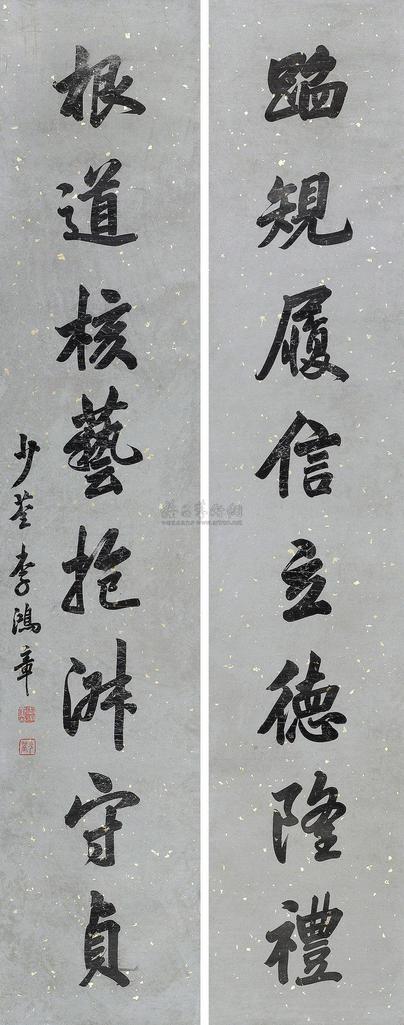 蹈規履信立德隆禮
根道核藝抱淑守貞
少荃李鴻章